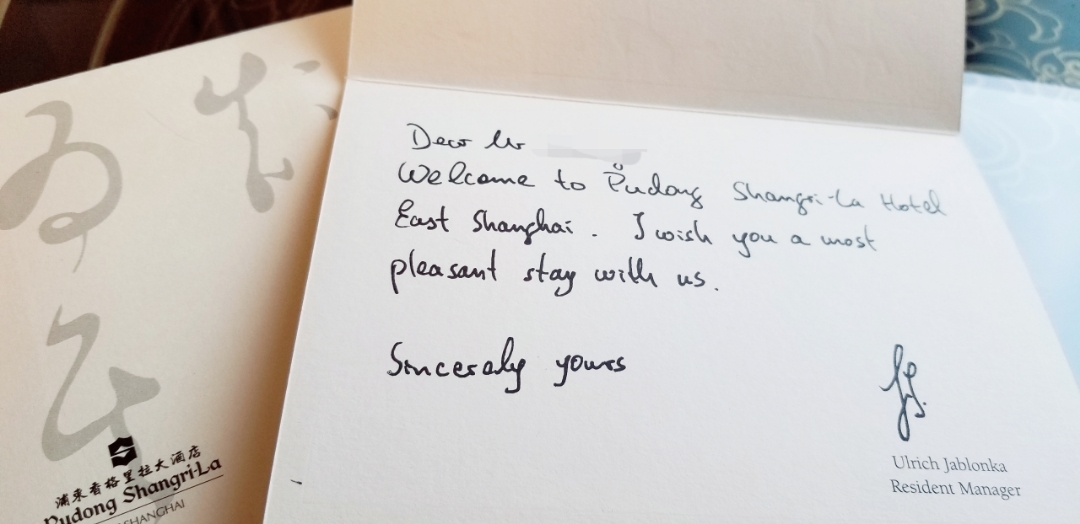 Dear Mr
Welcome to Pudong Shangri-La Hotel
East Shanghai. I wish you a most
pleasant stay with us.
Sincerely yours
Ulrich Jablonka
Resident Manager
浦東香格里拉大酒店
Pudong Shangri-La
SHANGHAI